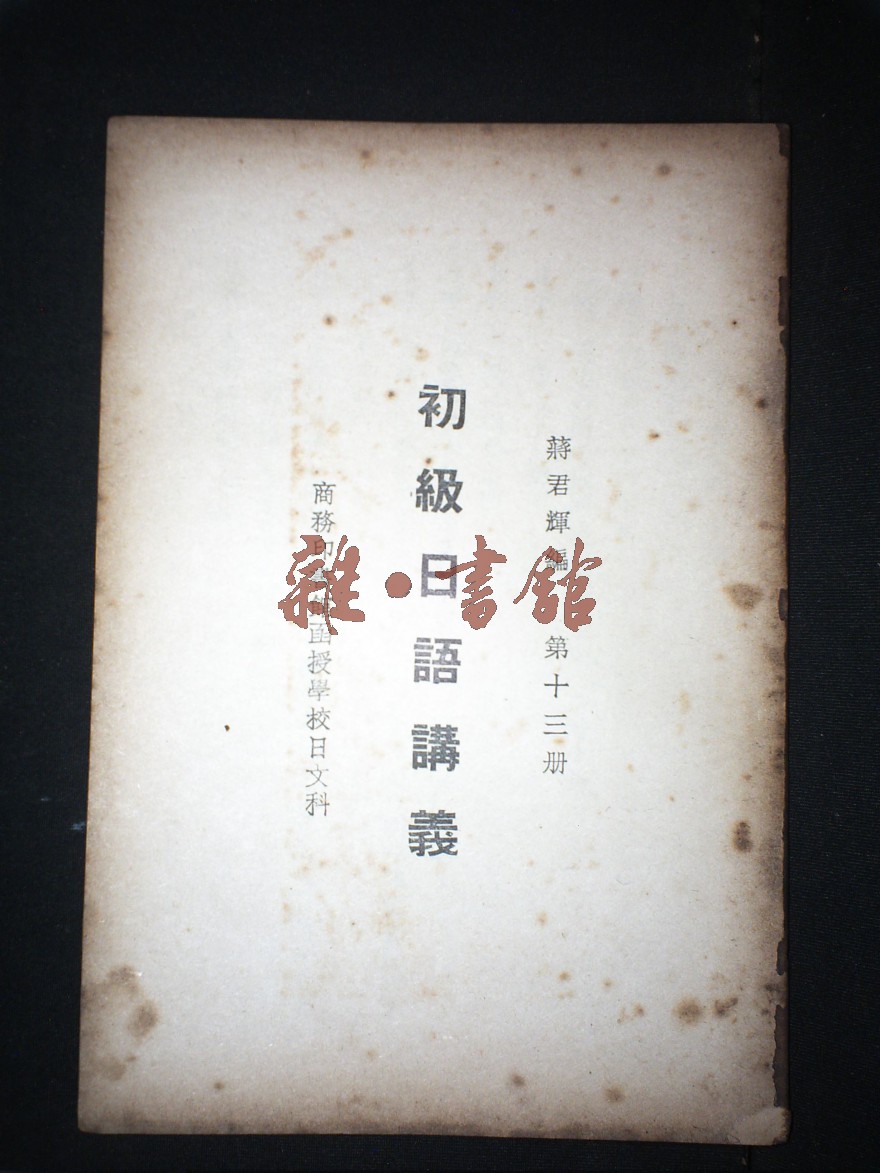 蔣君輝編 第十三册
初級日語講義
商務印書館函授學校日文科
雜·書館